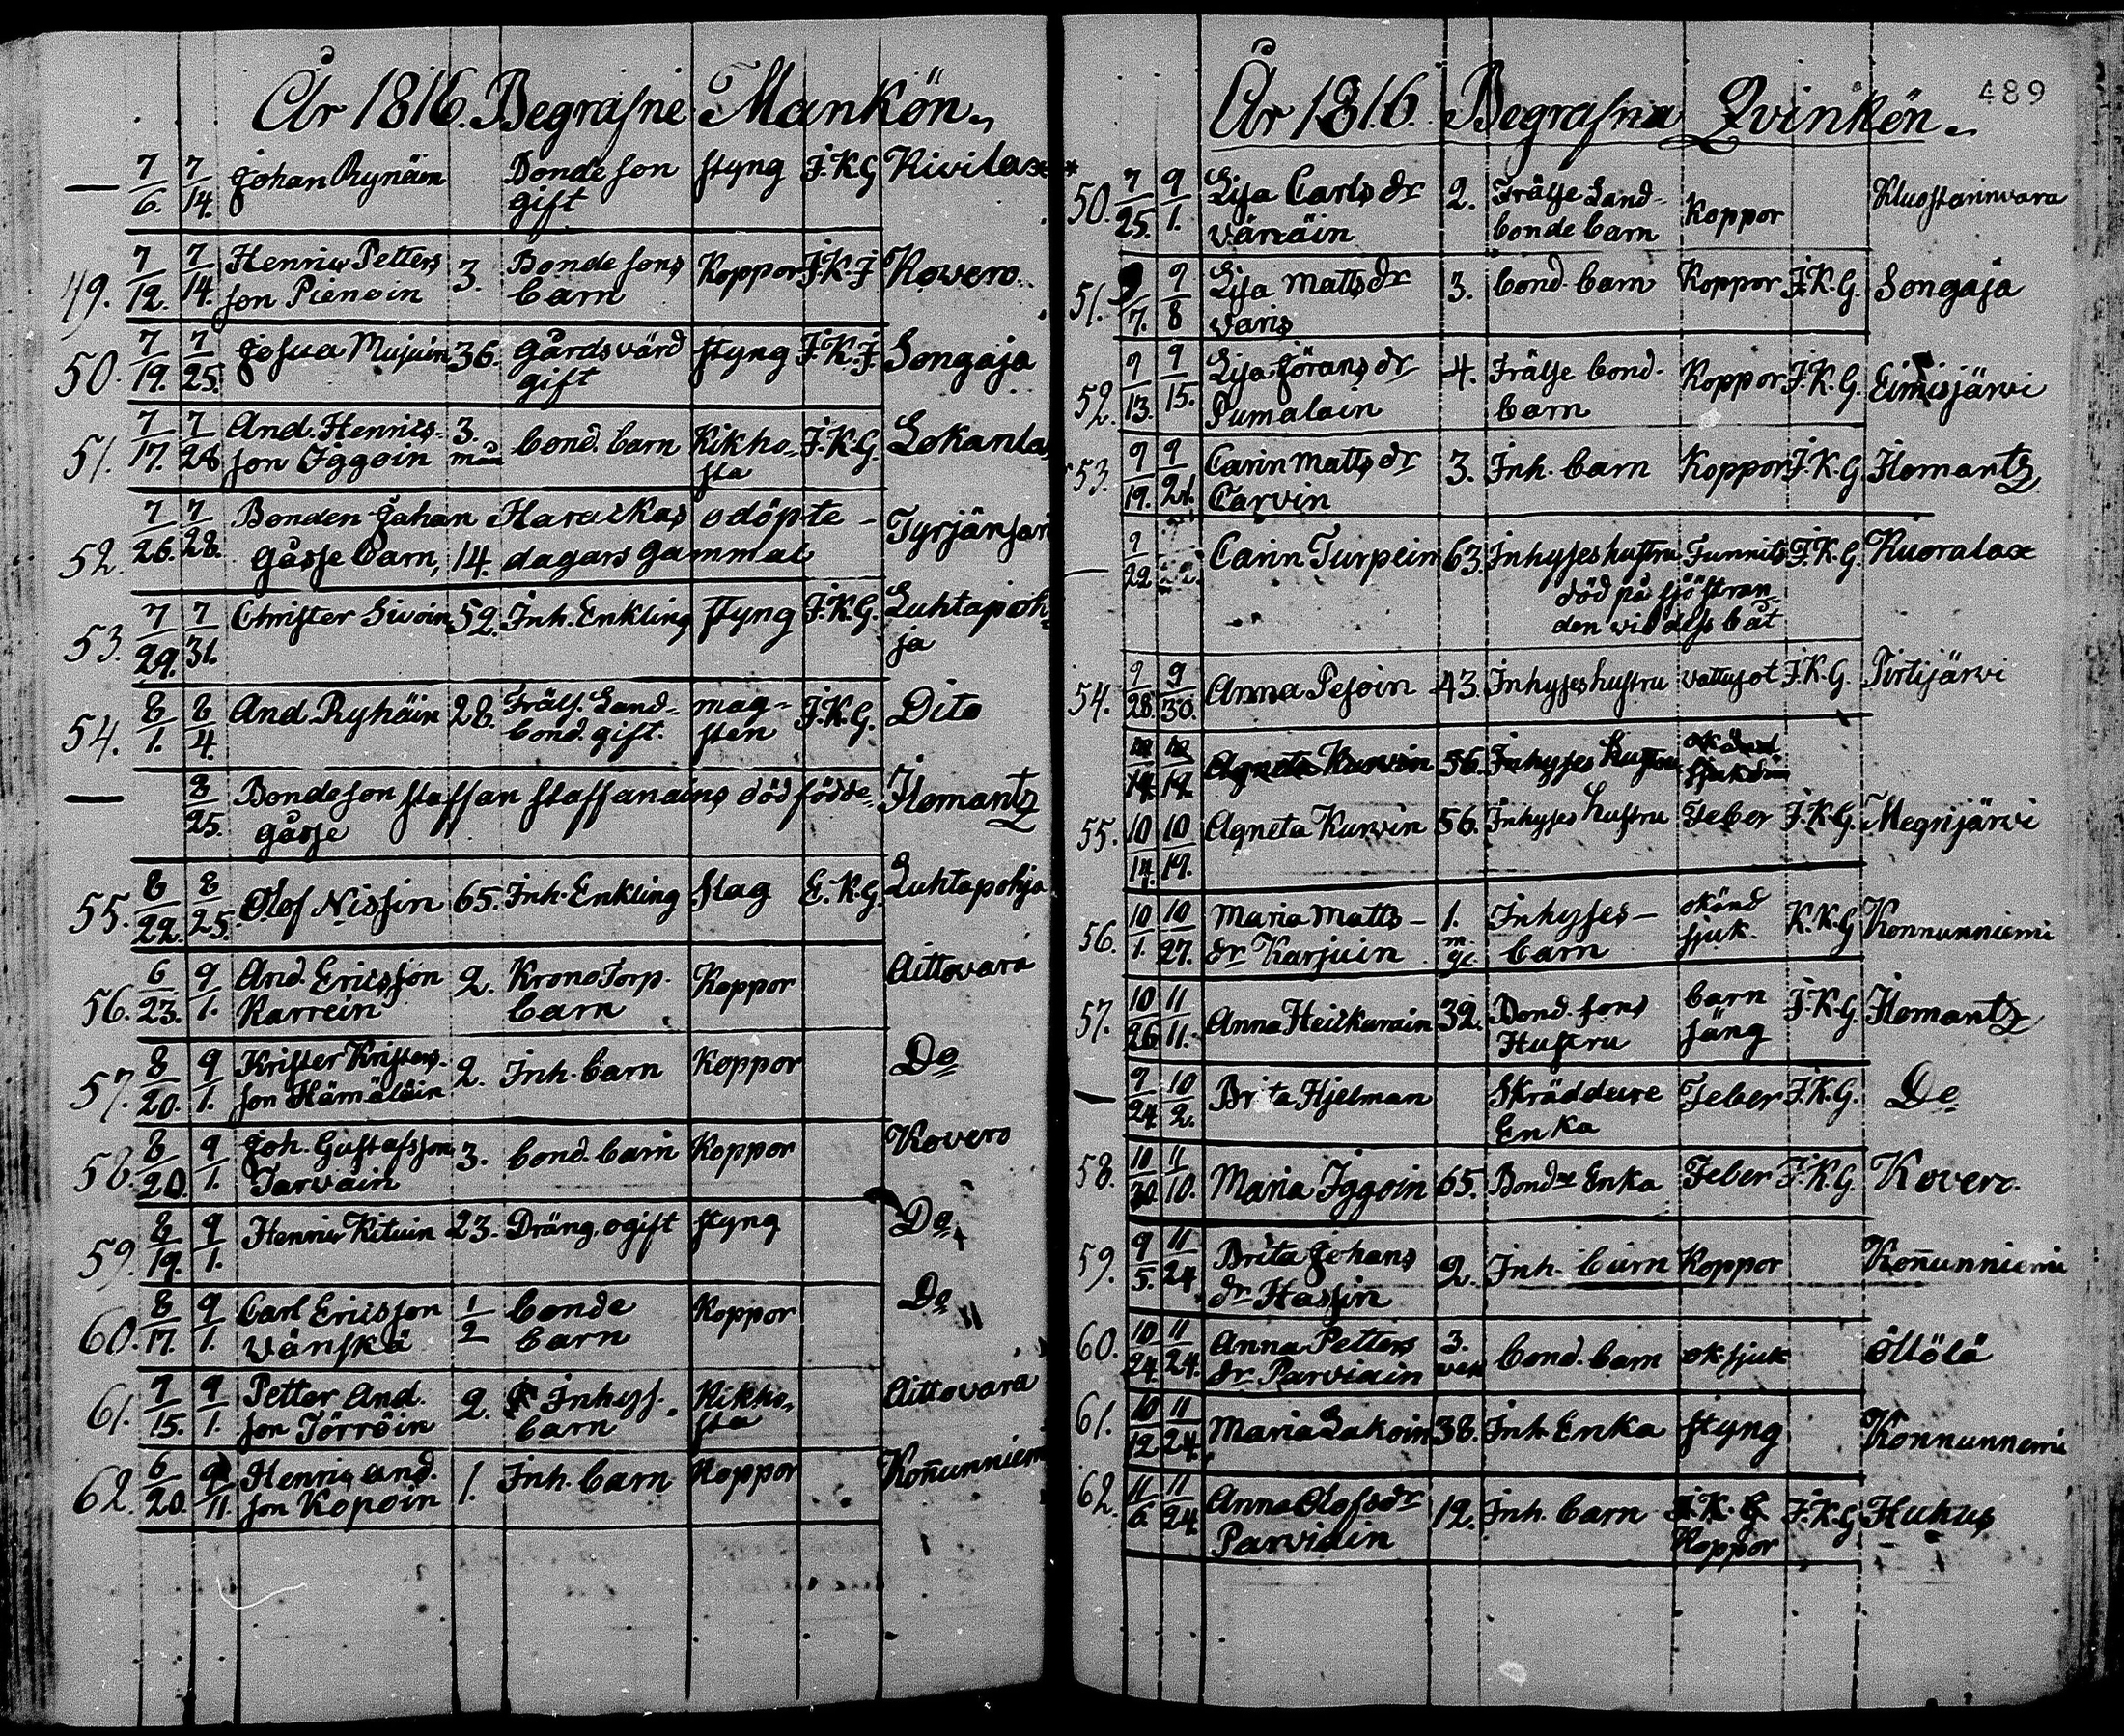 År 1816. Begrafne Mankön.
— 7/6. 7/14. Johan Rynäin Bonde son gift styng F.K.G Kivilax
49. 7/12. 7/14. Henric Petters son Pienoin 3. Bonde sons barn Koppor F.K.F Kovero.
50. 7/19. 7/25. Josua Mujuin 36. gårdsvärd gift styng F.K.F. Songaja
51. 7/17. 7/28 And. Henrics- son Iggoin 3. mån bond. barn Kikho- sta F.K.G. Lokanlax
52. 7/26. 7/28. Bonden Johan Haraikas odöpte - Gåsse barn, 14. dagars gammal Tyrjänsari
53. 7/29. 7/31. Christer Sivoin 52. Inh. Enkling styng F.K.G. Luhtapoh- ja
54. 8/1. 8/4. And. Ryhäin 28. Fräls. Land- bond. gift. mag- sten F.K.G. Dito
— 8/25. Bondeson Staffan Staffanains död födde gåsse Ilomantz
55. 8/22. 8/25. Olof Nissin 65. Inh. Enkling Slag E.K.G Luhtapohja
56. 6/23. 9/1. And. Ericsson Karrein 2. Krono Torp. barn Koppor Aittovara
57. 8/20. 9/1. Krister Kristers- son Hämäläin 2. Inh. barn Koppor Do
58. 8/20. 9/1. Joh. Gustafsson Tarvain 3. bond. barn Koppor Kovero
59. 8/19. 9/1. Henric Kituin 23. Dräng, ogift styng Do
60. 8/17. 9/1. Carl Ericsson Vänskä 1/2 bonde barn Koppor Do
61. 7/15. 9/1. Petter And. son Törröin 2. Inhys. barn Kikho- sta Aittovara
62. 6/20. 9/11. Henric And. son Kopoin 1. Inh. barn Koppor Kon̄unniem
År 1816. Begrafna Qvinkön.
489
50. 7/25. 9/1. Lisa Carls dr Vänäin 2. Frälse Land- bonde barn Koppor Kluostarinvara
51. 9/7. 9/8 Lisa Matts dr Varis 3. bond. barn Koppor F.K.G. Songaja
52. 9/13. 9/15. Lisa Görans dr Pumalain 4. Frälse bond. barn Koppor F.K.G. Eimisjärvi
53. 9/19. 9/21. Carin Matts dr Carvin 3. Inh. barn Koppor F.K.G Ilomantz
— 9/22 Carin Turpein 63. Inhyses hustru Funnits död på sjöstran- den vid dess båt F.K.G. Kuoralax
54. 9/28. 9/30. Anna Pesoin 43. Inhyses hustru vattusot F.K.G. Pirtijärvi
Agneta Kurvin 56. Inhyses hustru okänd sjukdom
55. 10/14. 10/19. Agneta Kurvin 56. Inhyses hustru Feber F.K.G. Megrijärvi
56. 10/1. 10/27. Maria Matts- dr Karjuin 1. m. Inhyses- barn okänd sjuk. K.K.G Konnunniemi
57. 10/26 11/11. Anna Heiskarain 32. Bond. sons Hustru barn säng F.K.G Ilomantz
— 9/24. 10/2. Brita Hjelman Skräddare Enka Feber F.K.G. Do
58. 10/30. 11/10. Maria Iggoin 65. Bonde Enka Feber F.K.G. Kovero.
59. 9/5. 11/24 Brita Johans dr Hassin 2. Inh. barn Koppor Kon̄unniemi
60. 10/24. 11/24. Anna Petters dr Parviain 3. vek bond. barn ok. sjuk öllölä
61. 10/12 11/24. Maria Lakoin 38. Inh. Enka styng Konnunnemi
62. 11/6. 11/24. Anna Olofs dr Parviain 12. Inh. barn F.K.G Koppor F.K.G Huhus